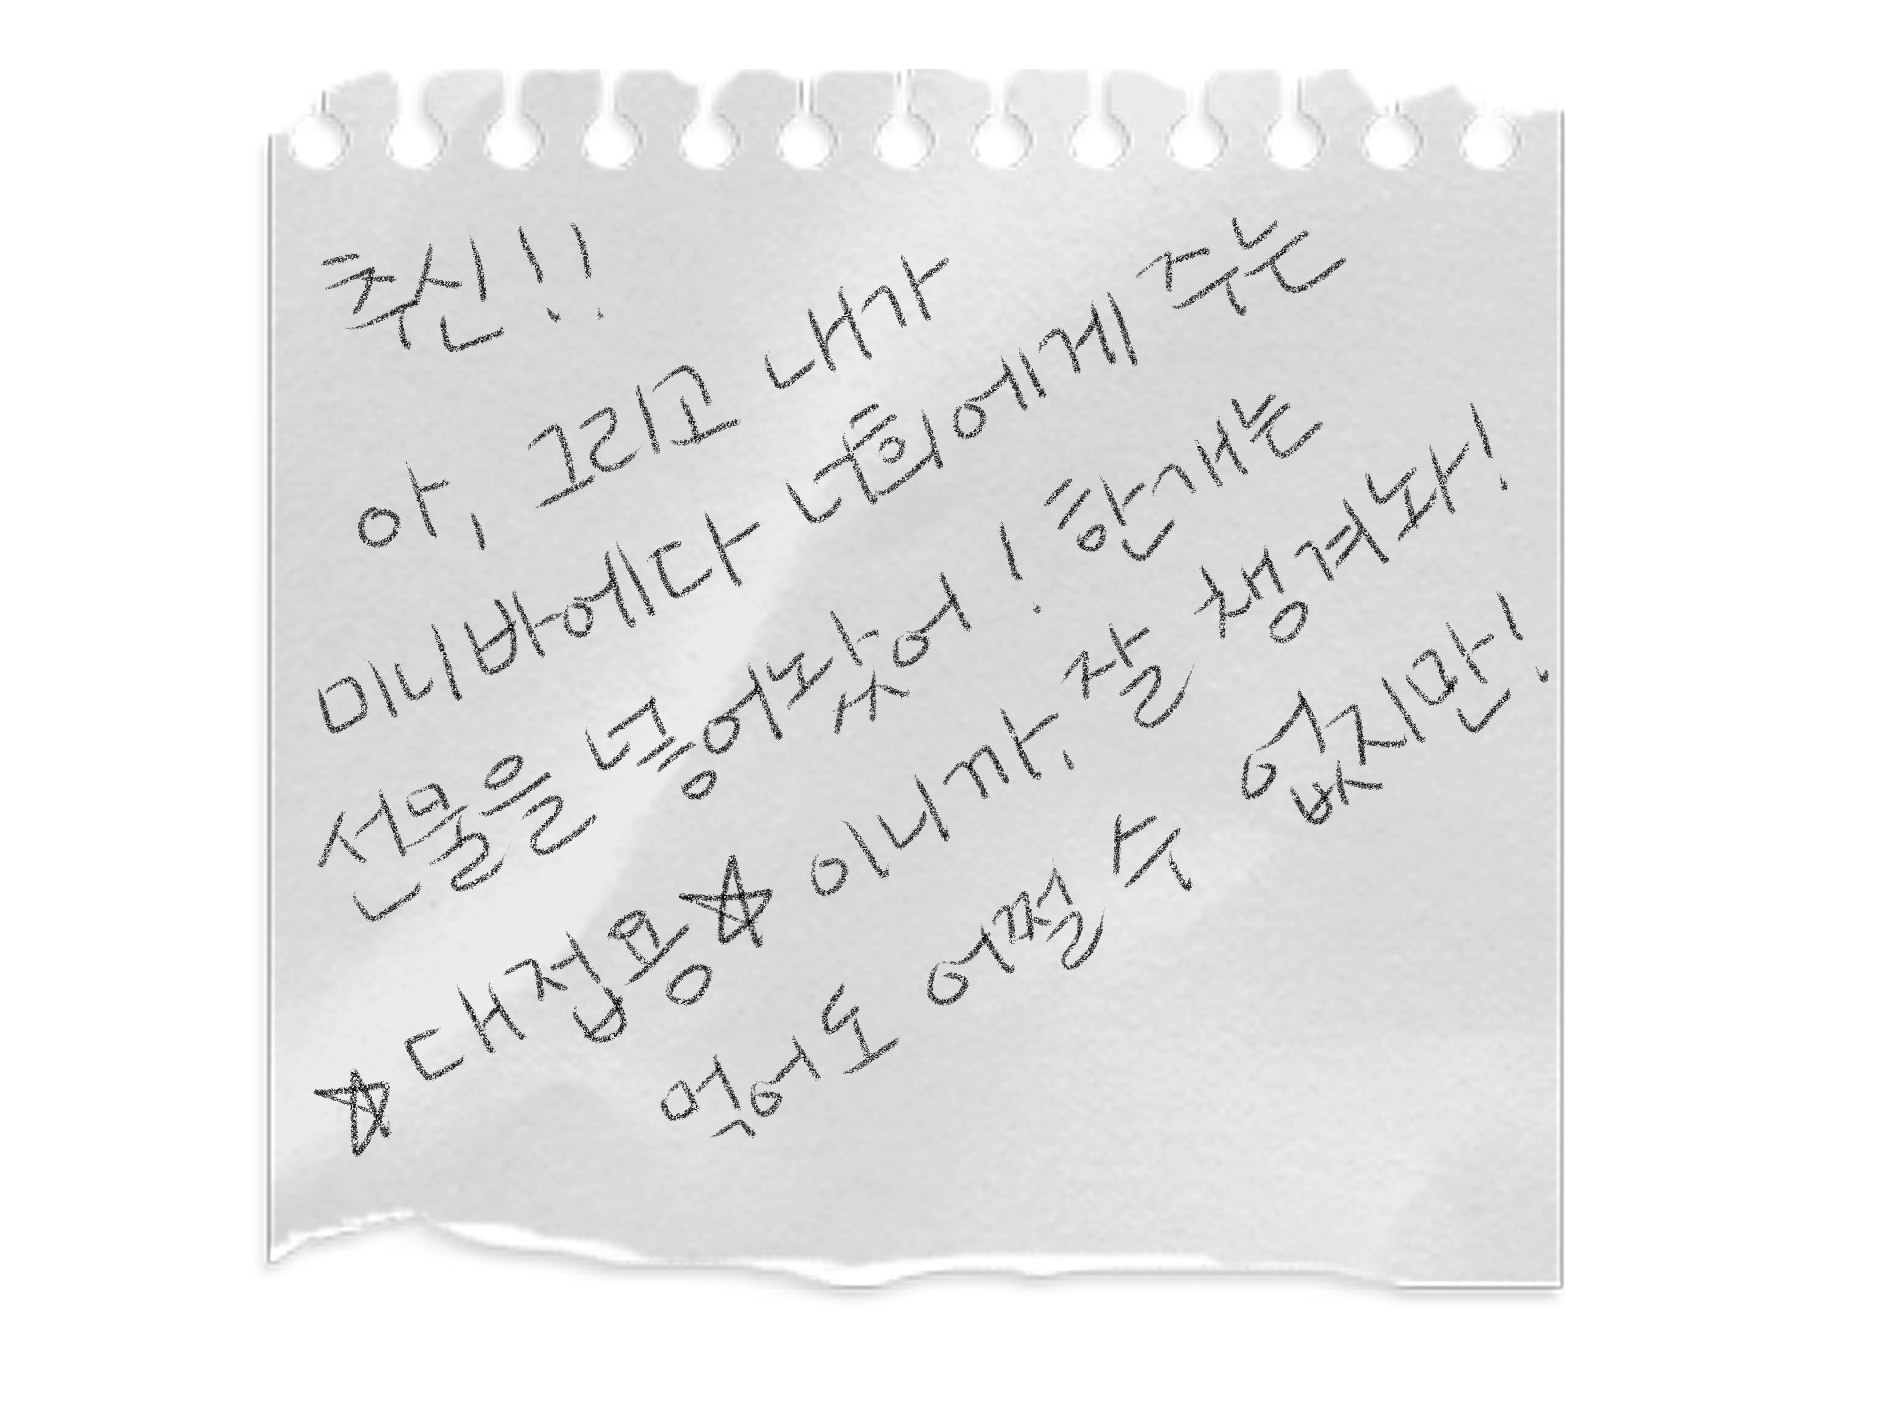 추신!!
아, 그리고 내가
미니바에다 너희에게 주는
선물을 넣어놨어! 한개는
☆대접용☆이니까, 잘 챙겨놔!
먹어도 어쩔 수 없지만!